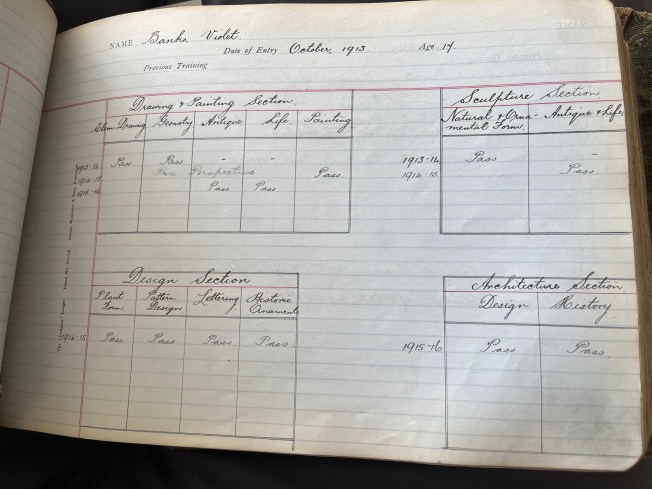 NAME Banks, Violet.
Date of Entry October, 1913. Age 17.
Previous Training
Drawing & Painting Section.
Elem Drawing. Geometry Antique Life. Painting
1913-14. Pass Pass - -
1914-15. Pass Perspective Pass.
1915-16. Pass Pass.
Sculpture Section
Natural & Orna- Antique & Life.
mental Form.
1913-14. Pass -
1914-15. Pass.
Design Section
Plant Pattern Lettering. Historic
Form. Design Ornament
1914-15 Pass Pass Pass Pass
Architecture Section
Design. History.
1915-16 Pass Pass.